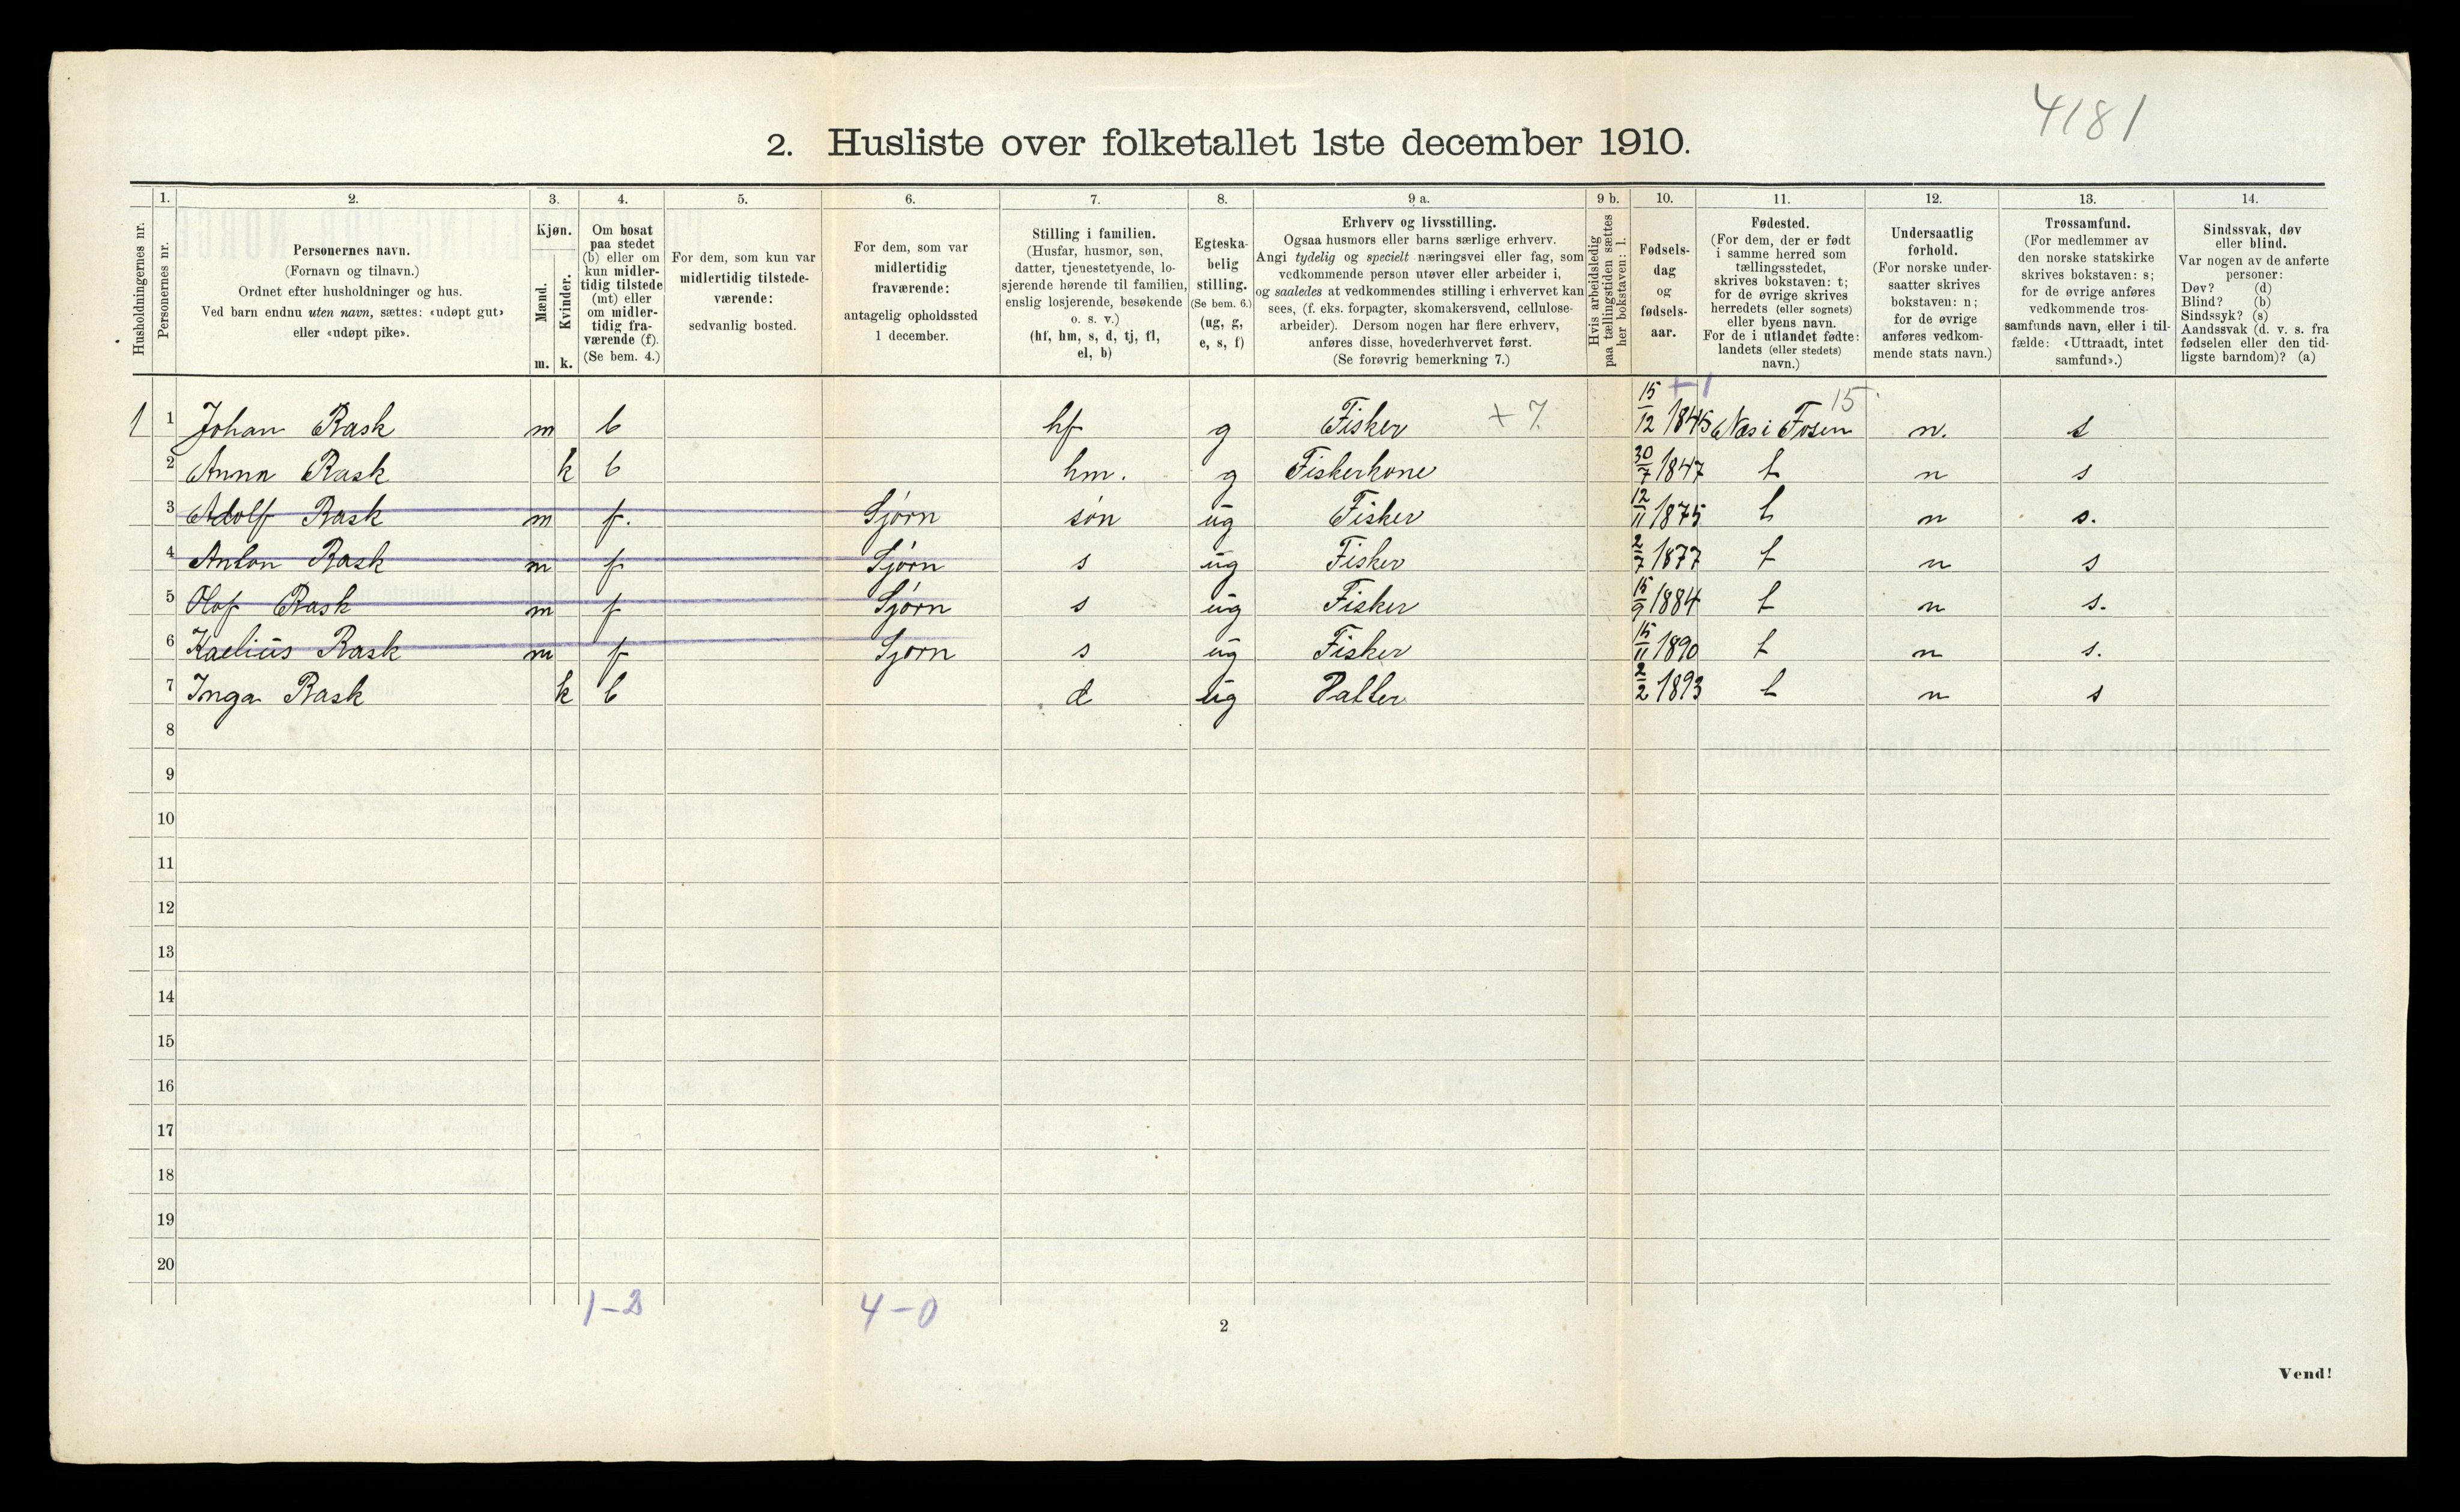 4181
2. Husliste over folketallet 1ste december 1910.
Husholdningernes nr.
1.
Personernes nr.
2.
Personernes navn.
(Fornavn og tilnavn.)
Ordnet efter husholdninger og hus.
Ved barn endnu uten navn, sættes: «udøpt gut»
eller «udøpt pike».
3.
Kjøn.
Mænd.
Kvinder.
m. k.
4.
Om bosat
paa stedet
(b) eller om
kun midler-
tidig tilstede
(mt) eller
om midler-
tidig fra-
værende (f).
(Se bem. 4.)
5.
For dem, som kun var
midlertidig tilstede-
værende:
sedvanlig bosted.
6.
For dem, som var
midlertidig
fraværende:
antagelig opholdssted
1 december.
7.
Stilling i familien.
(Husfar, husmor, søn,
datter, tjenestetyende, lo-
sjerende hørende til familien,
enslig losjerende, besøkende
o. s. v.)
(hf, hm, s, d, tj, fl,
el, b)
8.
Egteska-
belig
stilling.
(Se bem. 6.)
(ug, g,
e, s, f)
9 a.
Erhverv og livsstilling.
Ogsaa husmors eller barns særlige erhverv.
Angi tydelig og specielt næringsvei eller fag, som
vedkommende person utøver eller arbeider i,
og saaledes at vedkommendes stilling i erhvervet kan
sees, (f. eks. forpagter, skomakersvend, cellulose-
arbeider). Dersom nogen har flere erhverv,
anføres disse, hovederhvervet først.
(Se forøvrig bemerkning 7.)
9 b.
Hvis arbeidsledig
paa tællingstiden sættes
her bokstaven: l.
10.
Fødsels-
dag
og
fødsels-
aar.
11.
Fødested.
(For dem, der er født
i samme herred som
tællingsstedet,
skrives bokstaven: t;
for de øvrige skrives
herredets (eller sognets)
eller byens navn.
For de i utlandet fødte:
landets (eller stedets)
navn.)
12.
Undersaatlig
forhold.
(For norske under-
saatter skrives
bokstaven: n;
for de øvrige
anføres vedkom-
mende stats navn.)
13.
Trossamfund.
(For medlemmer av
den norske statskirke
skrives bokstaven: s;
for de øvrige anføres
vedkommende tros-
samfunds navn, eller i til-
fælde: «Uttraadt, intet
samfund».)
14.
Sindssvak, døv
eller blind.
Var nogen av de anførte
personer:
Døv? (d)
Blind? (b)
Sindssyk? (s)
Aandssvak (d. v. s. fra
fødselen eller den tid-
ligste barndom)? (a)
+1 15
1 1 Johan Rask m b hf g Fisker + 7. 15/12 1845 Næs i Fosen n. s
2 Anna Rask k b hm. g Fiskerkone 30/7 1847 t n s
3 Adolf Rask m f. Sjørn søn ug Fisker 12/11 1875 t n s.
4 Anton Rask m f Sjørn s ug Fisker 2/7 1877 t n s
5 Olof Rask m f Sjørn s ug Fisker 15/9 1884 t n s.
6 Kaelius Rask m f Sjørn s ug Fisker 15/11 1890 t n s.
7 Inga Rask k b d ug Datter 2/2 1893 t n s
8
9
10
11
12
13
14
15
16
17
18
19
20
1-2 4-0
2
Vend!